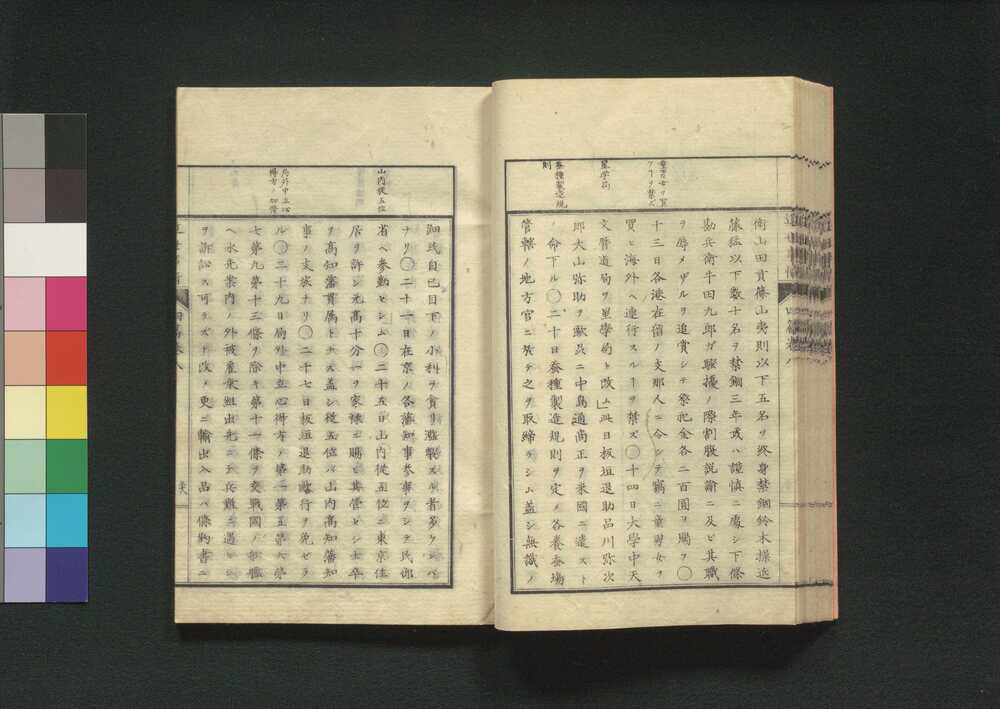 衛山田貢篠山夷則以下五名ヲ終身禁錮鈴木操近
藤猛以下数十名ヲ禁錮三年或ハ謹慎ニ處シ下條
勘兵衛牛田九郎ガ騒擾ノ際割腹説諭ニ及ビ其職
ヲ辱メザルヲ追賞シテ祭祀金各二百圓ヲ賜フ〇
十三日各港在留ノ支那人ニ令シテ竊ニ童男女ヲ
買ヒ海外ヘ連行スルヿヲ禁ズ〇十四日大學中天
文暦道局ヲ星學局ト改ム」此日板垣退助品川弥次
郎大山弥助ヲ歐呂ニ中島通商正ヲ米國ニ遣スト
ノ命下ル〇二十日蚕種製造規則ヲ定メ各養蚕場
管轄ノ地方官ニ於テ之ヲ取締ラシム蓋シ無識ノ
童男女ヲ買
フヿヲ禁ズ
星学局
蚕種製造規
則
細民自己目下ノ小利ヲ貪リ濫製スル者多ケレバ
ナリ〇二十一日在京ノ各藩知事参事ヲシテ民部
省ヘ参勤セシム〇二十五日山内從五位ニ東京住
居ヲ許シ元高十分一ヲ家禄ニ賜ヒ其管セシ士卒
ヲ高知藩貫属トス蓋シ從五位ハ山内高知藩知
事ノ支族ナリ〇二十七日板垣退助歐行ヲ免ゼラ
ル〇二十九日局外中立心得方ノ第二第五第六第
七第九第十三條ヲ除キ第十一條ヲ交戦國ノ船艦
ヘ水先案内ノ外被雇乗組出先ニテ兵難ニ遇ヒ
ヲ訴訟ス可ラズト改メ更ニ輸出入品ハ條約書ニ
山内従五位
局外中立心
得方ノ加除